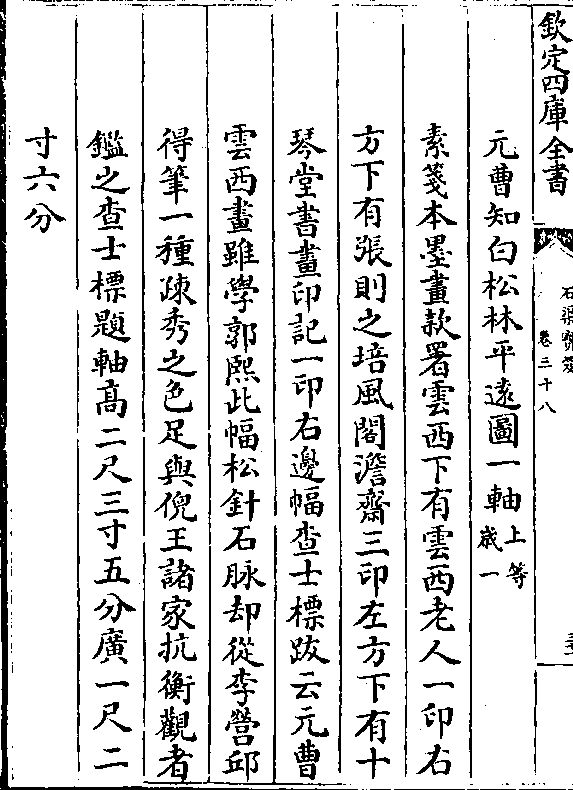 欽定四庫全書
石渠寶笈
卷三十八
元曹知白松林平逺圖一軸上等
崴一
素箋本墨畫款署雲西下有雲西老人一印右
方下有張則之培風閣澹齋三印左方下有十
琴堂書畫印記一印右邊幅查士標跋云元曹
雲西畫雖學郭熙此幅松針石脉却從李營邱
得筆一種疎秀之色足與倪王諸家抗衡觀者
鑑之查士標題軸髙二尺三寸五分廣一尺二
寸六分